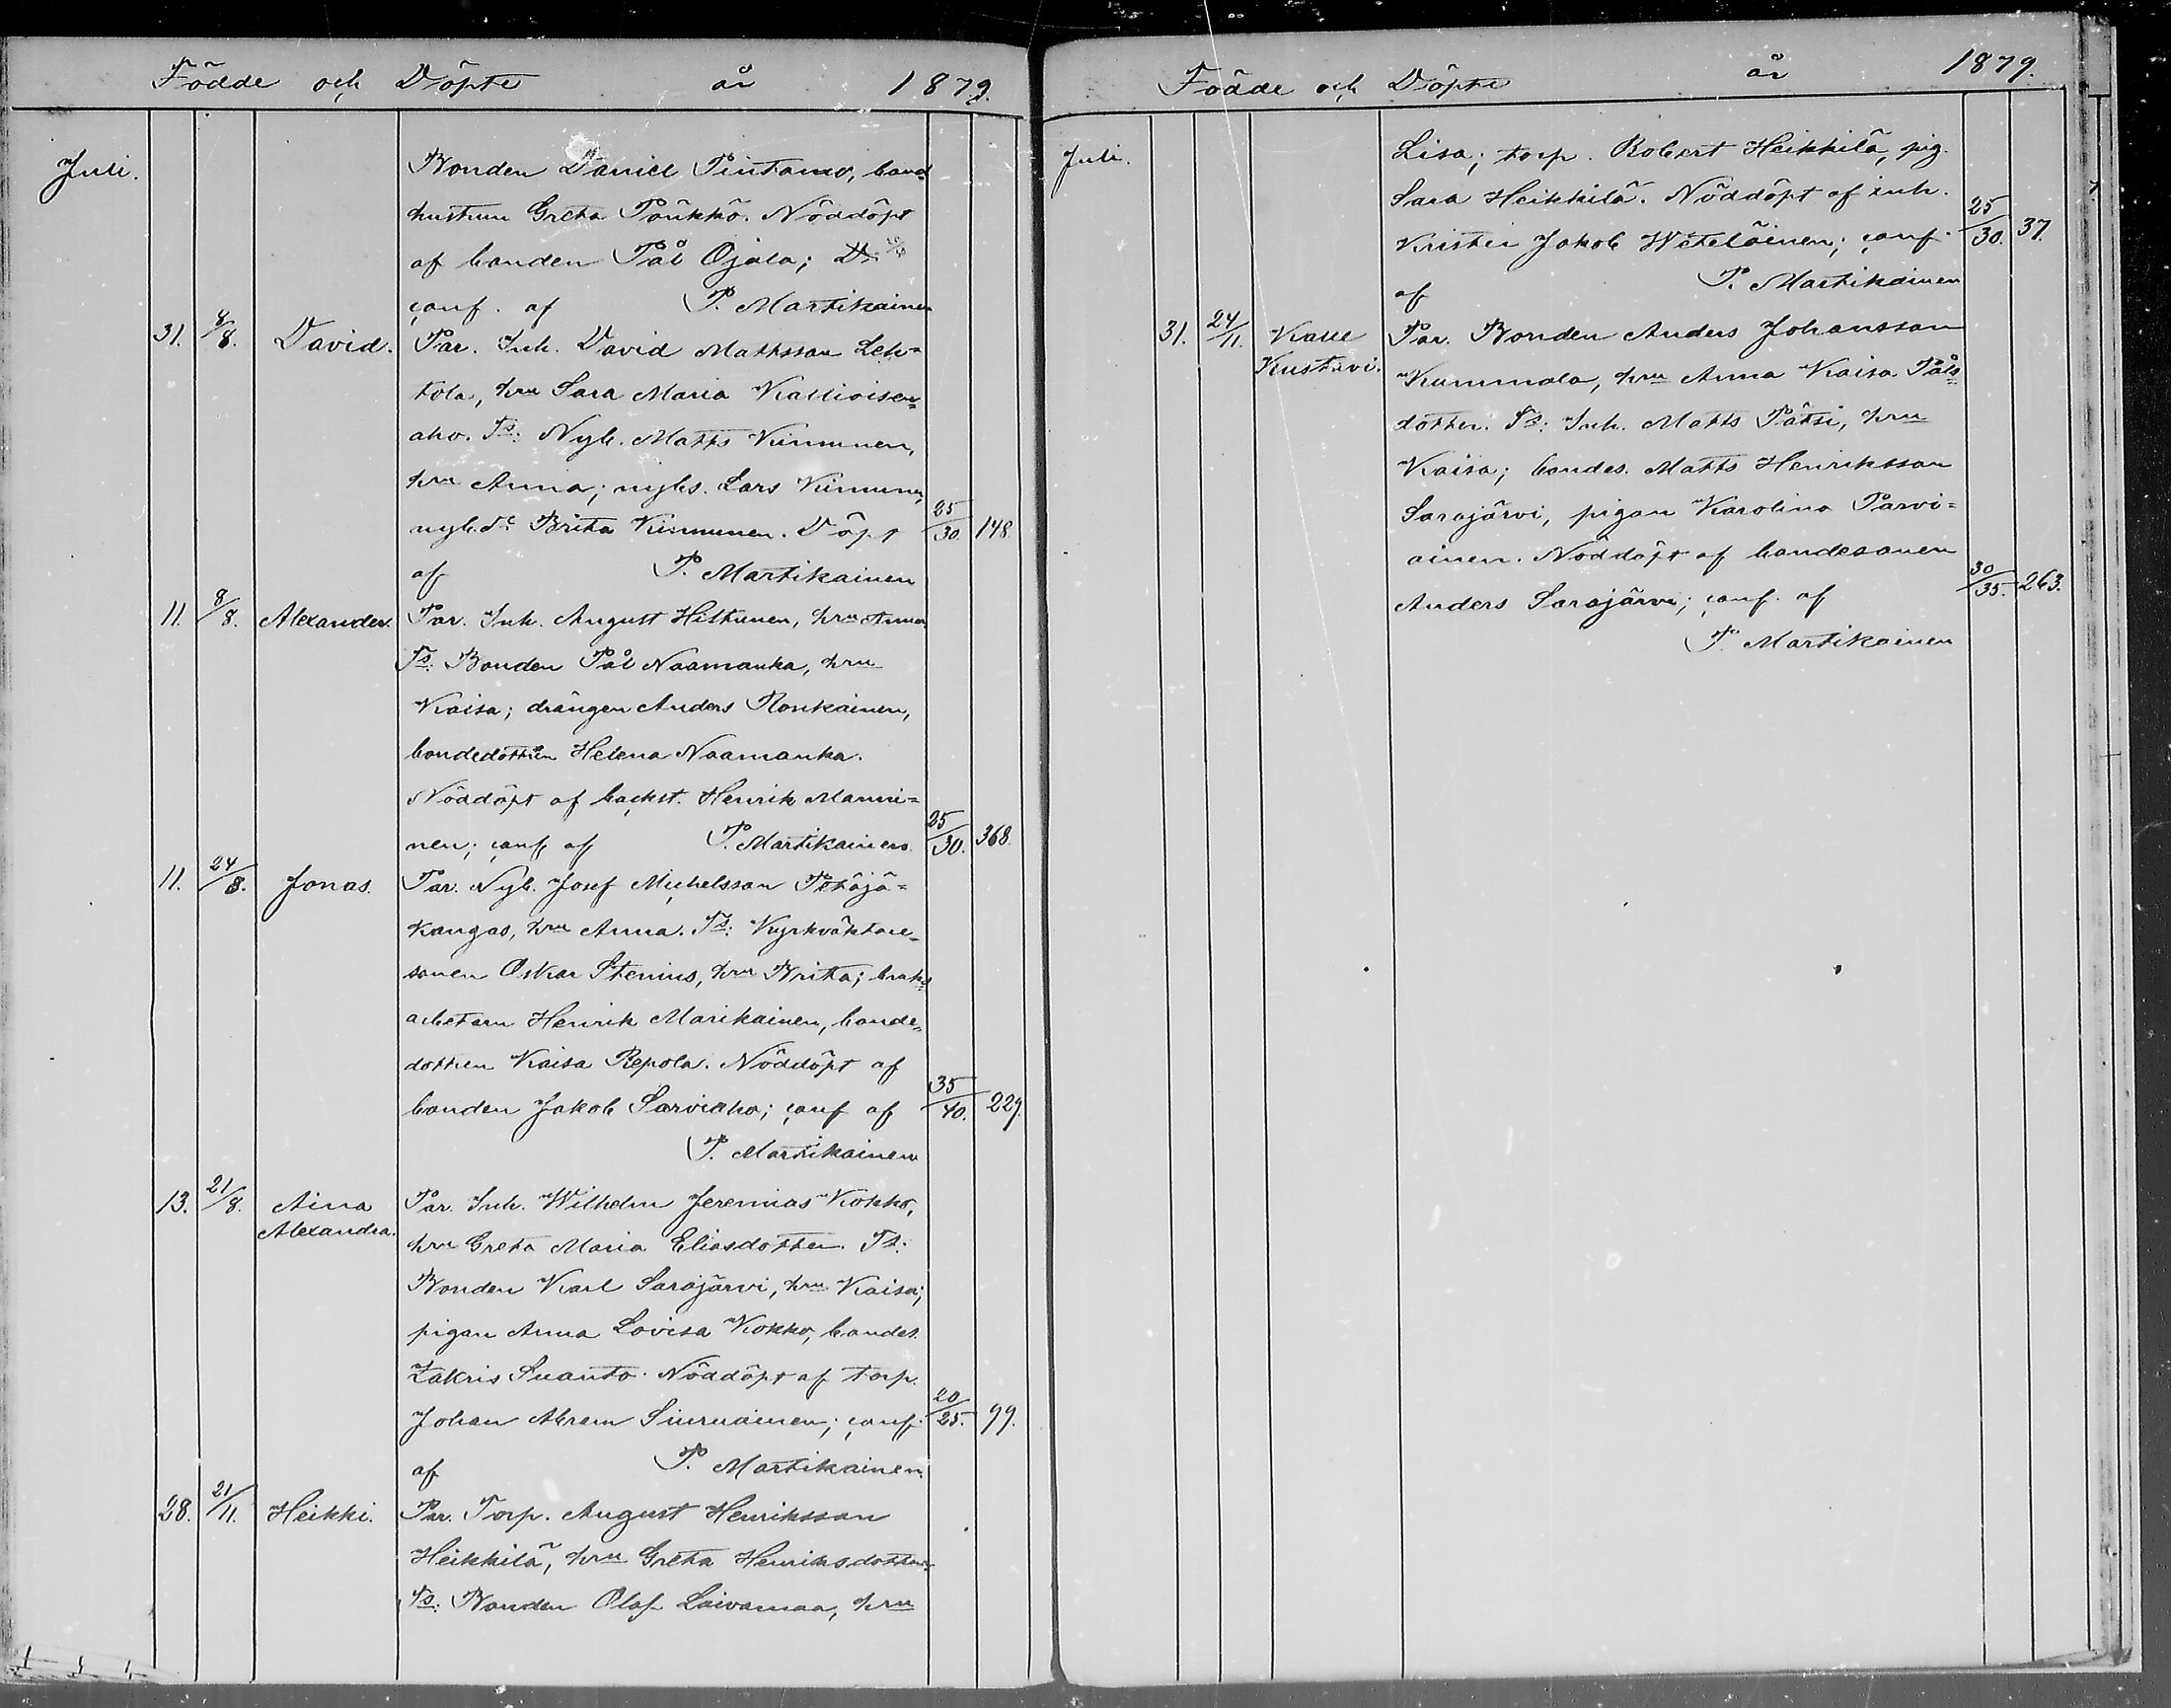 Födde och Döpte år 1879.
Juli.
Bonden Daniel Pintamo, bond-
hustrun Greta Pöükkö. Nöddöpt
af bonden Pål Ojala;
conf. af P. Martikainen
31. 8/8. David. Par. Inh. David Mattsson Leh=
tola, hru Sara Maria Kallioisen=
aho. Ts: Nyb. Matts Kinnunen,
hru Anna; nybs. Lars Kinnunen,
nyb.dr Brita Kinnunen. Döpt 25/30. 148.
af P. Martikainen
11. 8/8. Alexander. Par. Inh. August Hiltunen, hru Anna
Ts: Bonden Pål Naamanka, hru
Kaisa; drängen Anders Ronkainen,
bondedottren Helena Naamanka.
Nöddöpt af backst. Henrik Manni=
nen; conf af P. Martikainen. 25/30. 368.
11. 24/8. Jonas. Par. Nyb. Josef Michelsson Petäjä=
kangas, hru Anna. Ts: Kyrkväktare=
sonen Oskar Stenius, hru Brita; bruks=
arbetarn Henrik Marikainen, bonde=
dottren Kaisa Repola. Nöddöpt af
bonden Jakob Sarviaho; conf af 35/40. 229.
P. Martikainen
13. 21/8. Aina Par. Inh. Wilhelm Jeremias Kokko,
Alexandra. hru Greta Maria Eliasdotter. Ts:
Bonden Karl Sarajärvi, hru Kaisa;
pigan Anna Lovisa Kokko, bondes.
Zakris Suanto. Nöddöpt af torp.
Johan Abram Siuruainen; conf. 20/25. 99.
af P. Martikainen.
28. 21/11. Heikki. Par. Torp. August Henriksson
Heikkilä, hru Greta Henriksdotter.
Ts: Bonden Olof Laivamaa, hru
Födde och Döpte år 1879.
Juli.
Lisa; torp. Robert Heikkilä, pig.
Sara Heikkilä. Nöddöpt af inh.
Krister Jakob Weteläinen; conf. 25/30. 37.
af P. Martikainen
31. 24/11. Kalle Par. Bonden Anders Johansson
Kustavi. Kummala, hru Anna Kaisa Påls=
dotter. Ts: Inh. Matts Pätsi, hru
Kaisa; bondes. Matts Henriksson
Sarajärvi, pigan Karolina Parvi=
ainen. Nöddöpt af bondesonen
Anders Sarajärvi; conf. af 30/35. 263.
P. Martikainen